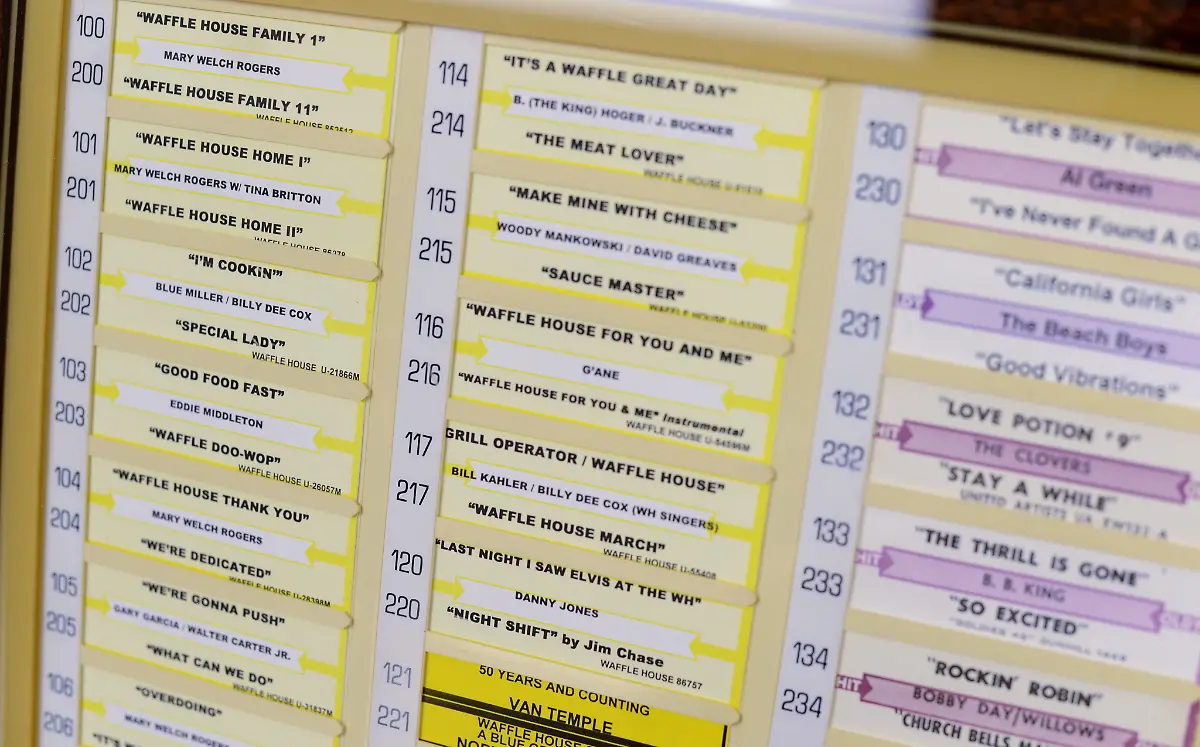 100
"WAFFLE HOUSE FAMILY 1"
MARY WELCH ROGERS
200
"WAFFLE HOUSE FAMILY 11"
WAFFLE HOUSE
101
"WAFFLE HOUSE HOME I"
MARY WELCH ROGERS W/ TINA BRITTON
201
"WAFFLE HOUSE HOME II"
WAFFLE HOUSE
102
"I'M COOKIN'"
BLUE MILLER / BILLY DEE COX
202
"SPECIAL LADY"
WAFFLE HOUSE U-21866M
103
"GOOD FOOD FAST"
EDDIE MIDDLETON
203
"WAFFLE DOO-WOP"
WAFFLE HOUSE U-26057M
104
"WAFFLE HOUSE THANK YOU"
MARY WELCH ROGERS
204
"WE'RE DEDICATED"
WAFFLE HOUSE U-28398M
105
"WE'RE GONNA PUSH"
GARY GARCIA / WALTER CARTER JR.
205
"WHAT CAN WE DO"
WAFFLE HOUSE U-31837M
106
"OVERDOING"
MARY WELCH ROGERS
206
114
"IT'S A WAFFLE GREAT DAY"
B. (THE KING) HOGER / J. BUCKNER
214
"THE MEAT LOVER"
WAFFLE HOUSE
115
"MAKE MINE WITH CHEESE"
WOODY MANKOWSKI / DAVID GREAVES
215
"SAUCE MASTER"
WAFFLE HOUSE
116
"WAFFLE HOUSE FOR YOU AND ME"
G'ANE
216
"WAFFLE HOUSE FOR YOU & ME" Instrumental
WAFFLE HOUSE U-54596M
117
GRILL OPERATOR / WAFFLE HOUSE"
BILL KAHLER / BILLY DEE COX (WH SINGERS)
217
"WAFFLE HOUSE MARCH"
WAFFLE HOUSE U-55408
120
"LAST NIGHT I SAW ELVIS AT THE WH"
DANNY JONES
220
"NIGHT SHIFT" by Jim Chase
WAFFLE HOUSE 86757
121
50 YEARS AND COUNTING
VAN TEMPLE
221
WAFFLE HOUSE
A BLUE
130
"Let's Stay Together
HIT
Al Green
230
"I've Never Found A G
131
"California Girls"
The Beach Boys
231
"Good Vibrations"
132
"LOVE POTION #9"
HIT
THE CLOVERS
232
"STAY A WHILE"
UNITED ARTISTS
133
"THE THRILL IS GONE"
HIT
B. B. KING
233
"SO EXCITED"
134
"ROCKIN' ROBIN"
HIT
BOBBY DAY/WILLOWS
234
"CHURCH BELLS MA